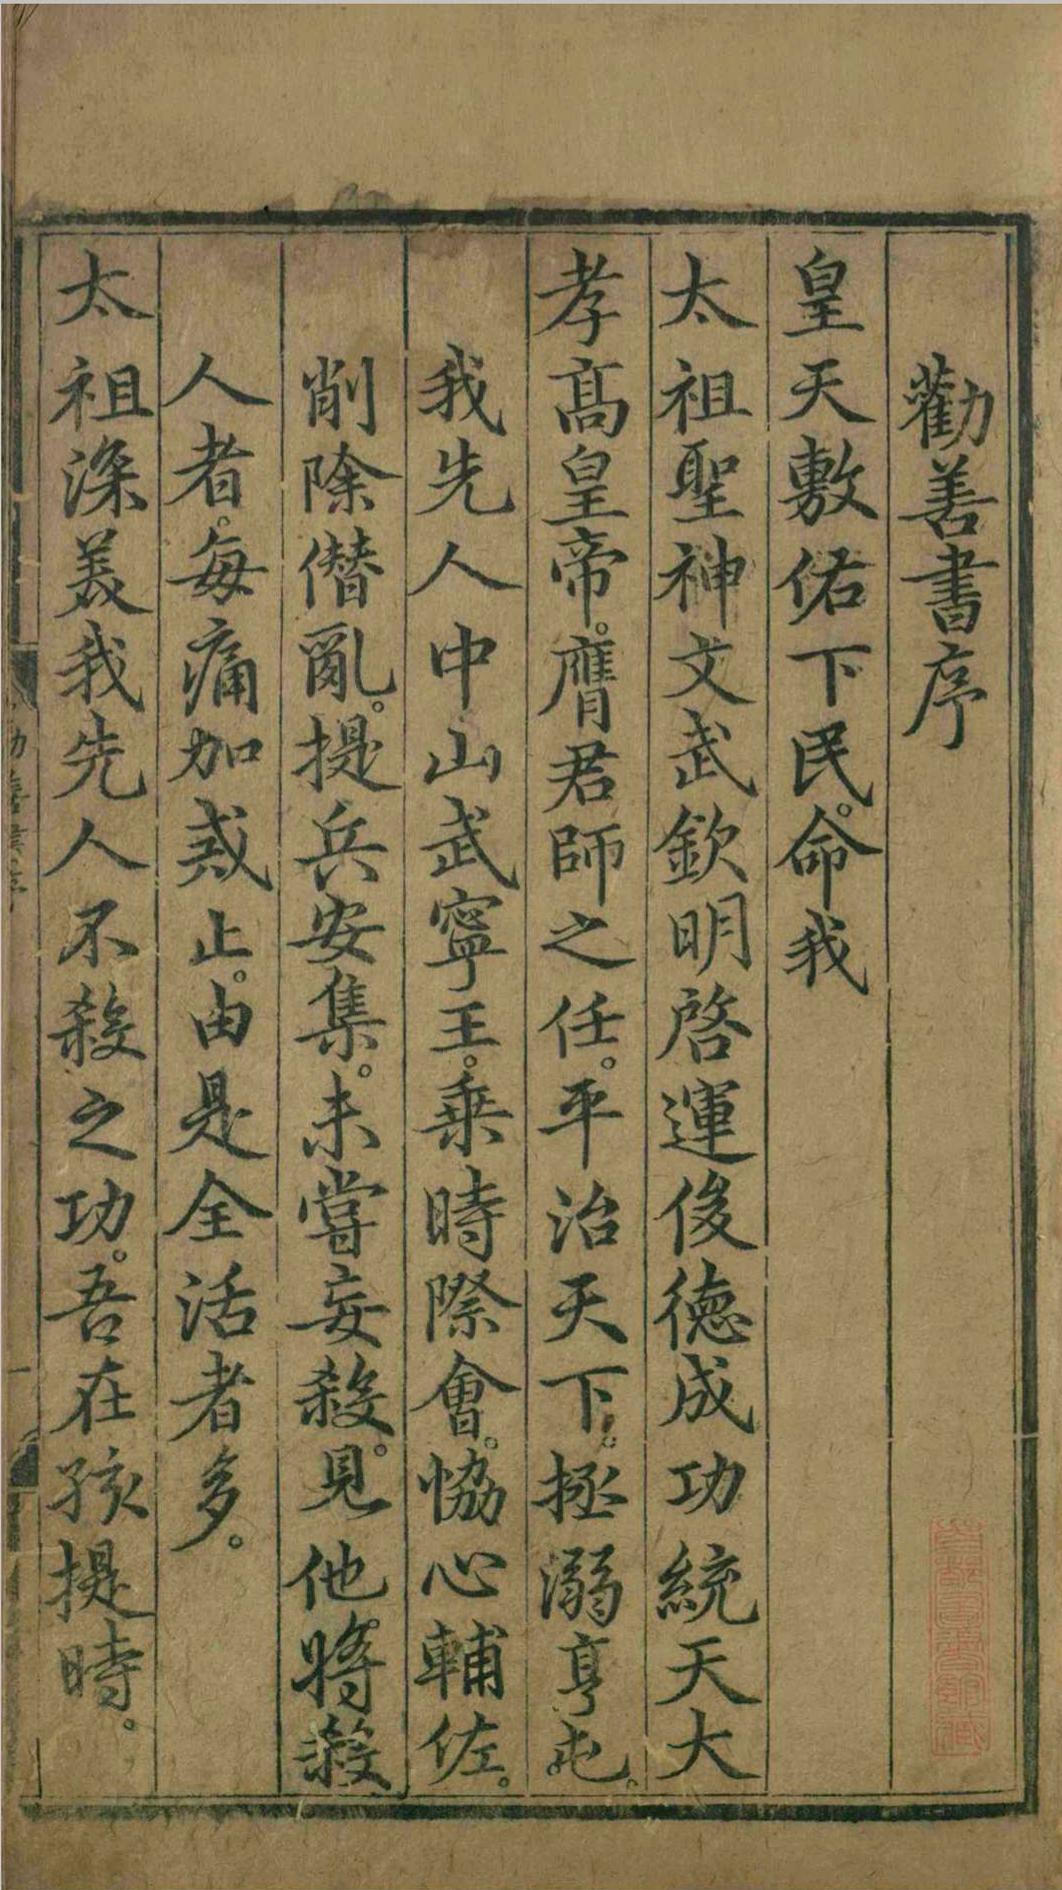 勸善書序
皇天敷佑下民。命我
太祖聖神文武欽明啓運俊德成功統天大
孝高皇帝。膺君師之任。平治天下。拯溺亨屯。
我先人中山武寧王。乗時際會。恊心輔佐。
削除僭亂。提兵安集。未嘗妄殺。見他將殺
人者。每痛加戒止。由是全活者多。
太祖深美我先人不殺之功。吾在孩提時。